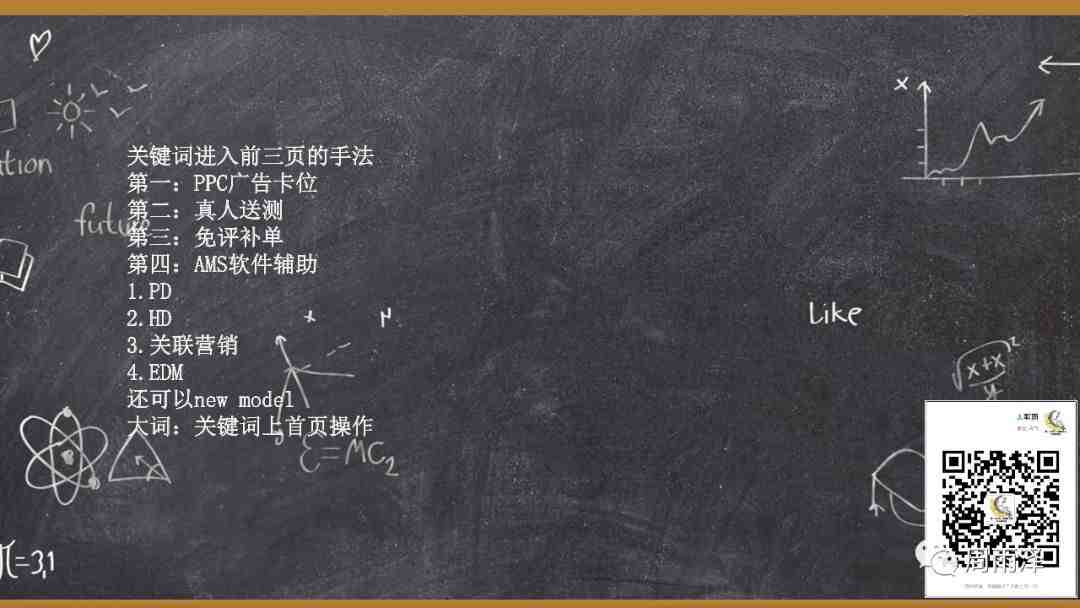 关键词进入前三页的手法
第一：PPC广告卡位
第二：真人送测
第三：免评补单
第四：AMS软件辅助
1.PD
2.HD
3.关联营销
4.EDM
还可以new model
大词：关键词上首页操作
future
Like
x
x
x+x
ε=MC2
π=3,1
周雨泽